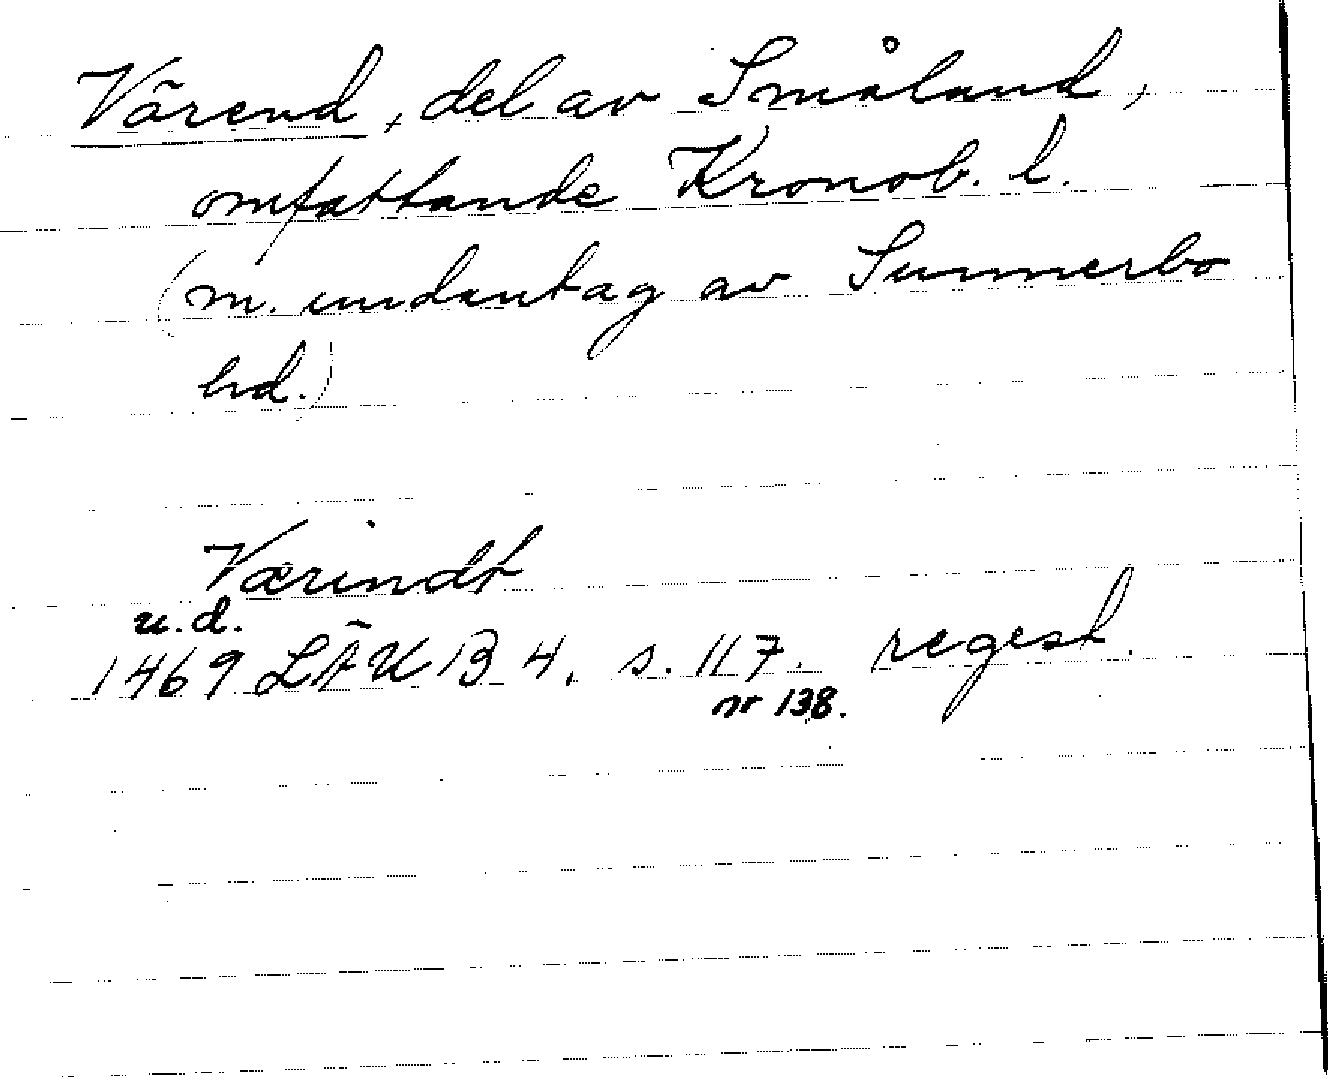 Värend, del av Småland,
omfattande Kronob. l.
(m. undantag av Sunnerbo
hd.)
Værindh
u.d.
1469 LÄUB 4. s. 117. regest.
nr 138.